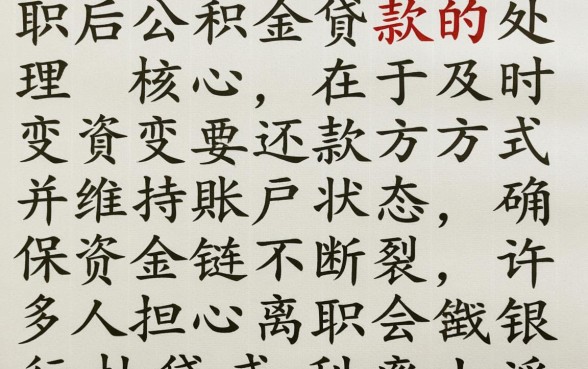 职后公积金贷款的处
理 核心，在于及时
变資变要还款方方式
并维持賬户状态，确
保资金链不断裂，许
多人担心离职会银